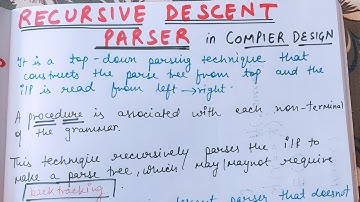 RECURSIVE DESCENT
PARSER in COMPIER DESIGN
It is a top-down parsing technique that
constructs the parse tree from top and the
i/p is read from left → right.
A procedure is associated with each non-terminal
of the grammar.
This technique recursively parses the i/p to
make a parse tree, which may/maynot require
backtracking
parser that doesnot